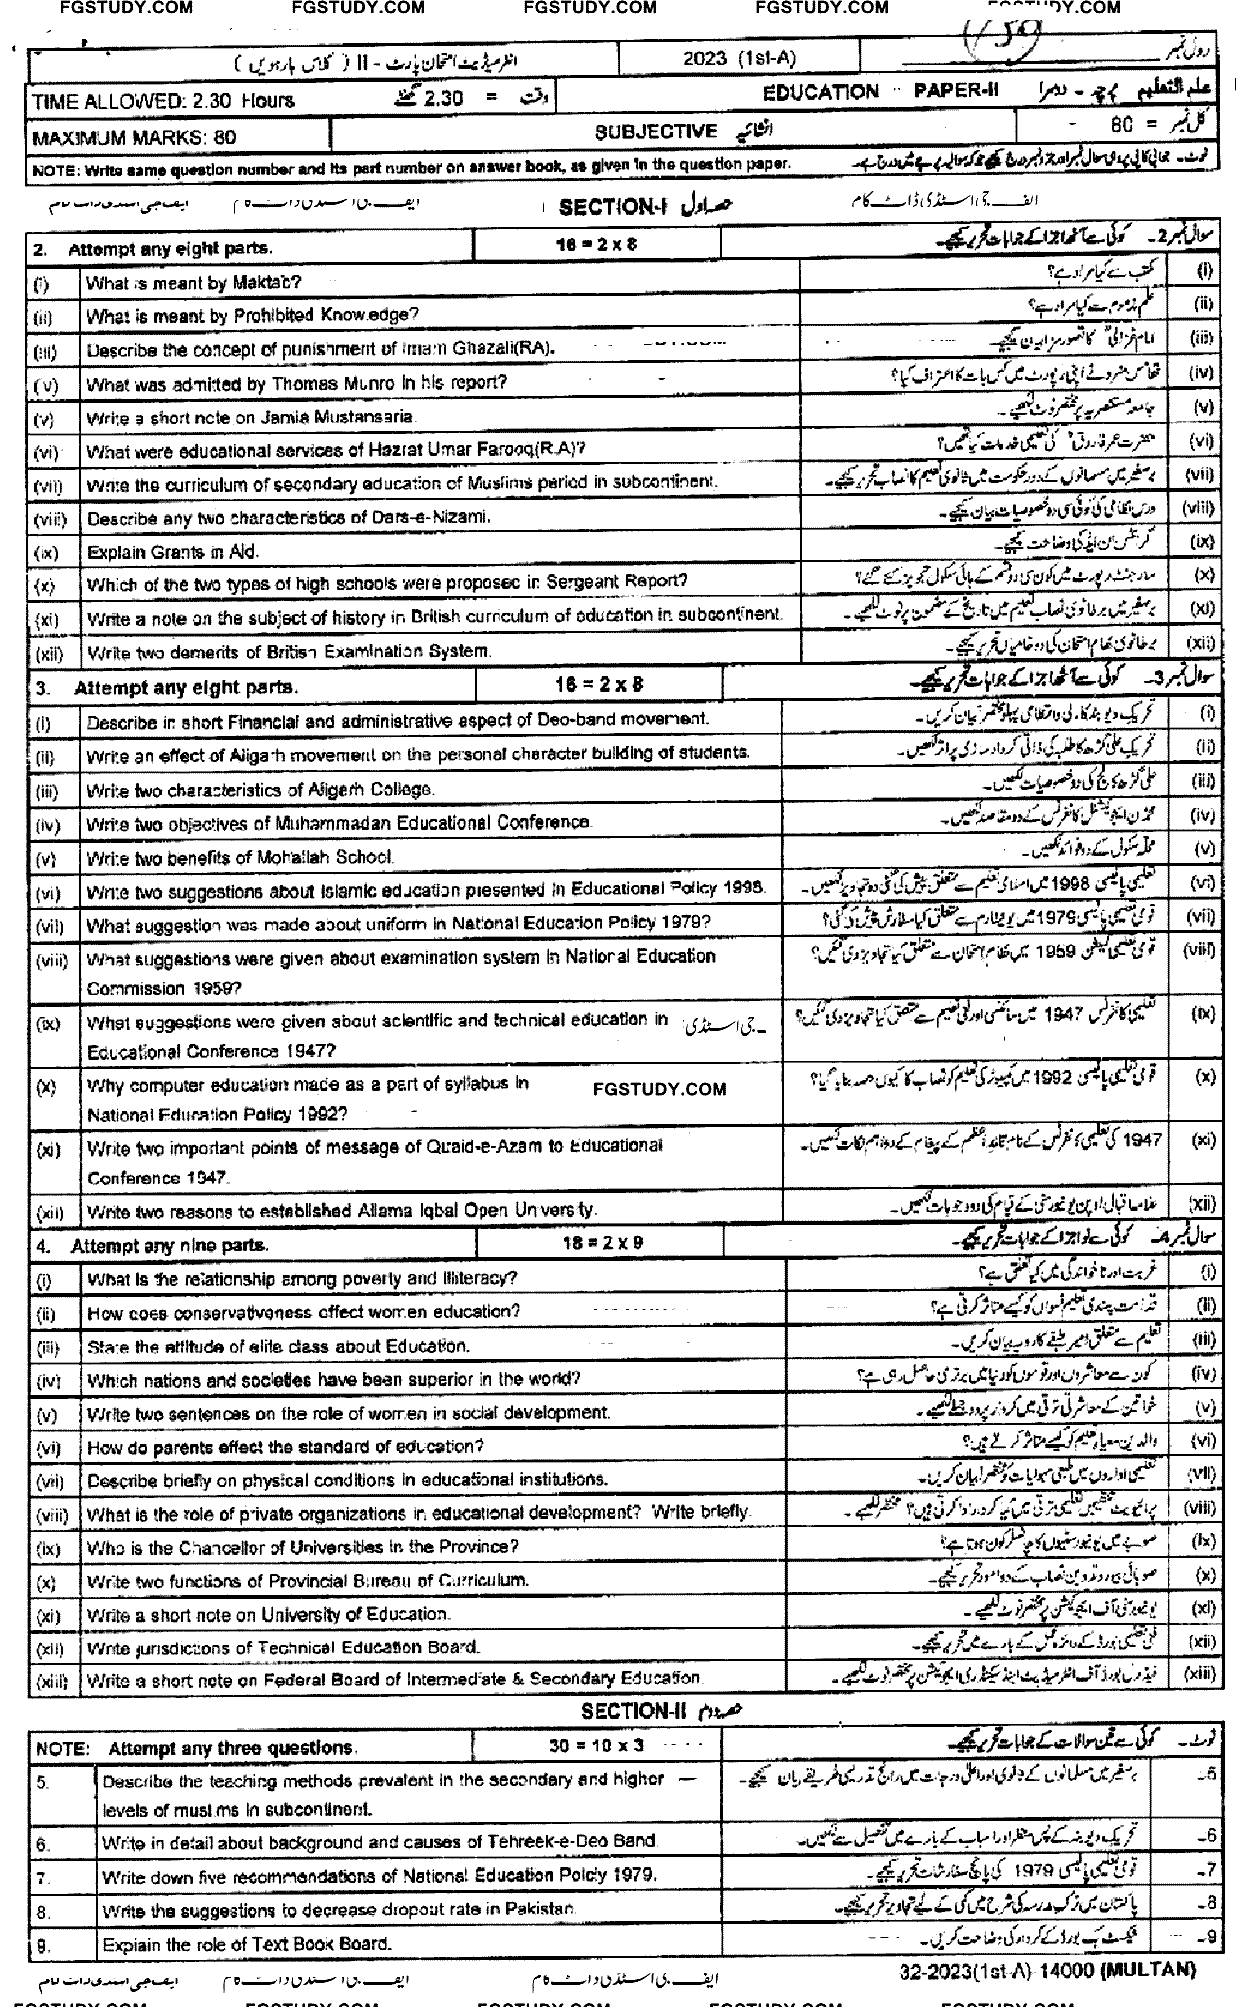 FGSTUDY.COM FGSTUDY.COM FGSTUDY.COM FGSTUDY.COM
انٹرمیڈیٹ امتحان پارٹ - II (کلاس بارہویں) 2023 (1st-A) رول نمبر
TIME ALLOWED: 2.30 Hours وقت = 2.30 گھنٹے EDUCATION PAPER-II علم التعلیم پرچہ - دوسرا
MAXIMUM MARKS: 80 SUBJECTIVE انشائیہ کل نمبر = 80
NOTE: Write same question number and its part number on answer book, as given in the question paper.
ایف جی اسٹڈی ڈاٹ کام ایف جی اسٹڈی ڈاٹ کام SECTION-I حصہ اول ایف جی اسٹڈی ڈاٹ کام
2. Attempt any eight parts. 16 = 2 x 8 سوال نمبر 2۔ کوئی سے آٹھ اجزا کے جوابات تحریر کیجیے۔
(i) What is meant by Maktab? مکتب سے کیا مراد ہے؟ (i)
(ii) What is meant by Prohibited Knowledge? علم مذموم سے کیا مراد ہے؟ (ii)
(iii) Describe the concept of punishment of Imam Ghazali(RA). امام غزالیؒ کا تصور سزا بیان کیجیے۔ (iii)
(v) What was admitted by Thomas Munro in his report? تھامس منرو نے اپنی رپورٹ میں کس بات کا اعتراف کیا؟ (iv)
(v) Write a short note on Jamia Mustansaria. جامعہ مستنصریہ پر مختصر نوٹ لکھیے۔ (v)
(vi) What were educational services of Hazrat Umar Farooq(R.A)? حضرت عمر فاروقؓ کی تعلیمی خدمات کیا تھیں؟ (vi)
(vii) Write the curriculum of secondary education of Muslims period in subcontinent. برصغیر میں مسلمانوں کے دور حکومت میں ثانوی تعلیم کا نصاب تحریر کیجیے۔ (vii)
(viii) Describe any two characteristics of Dars-e-Nizami. درس نظامی کی کوئی سی دو خصوصیات بیان کیجیے۔ (viii)
(ix) Explain Grants in Aid. گرانٹس ان ایڈ کی وضاحت کیجیے۔ (ix)
(x) Which of the two types of high schools were proposed in Sergeant Report? سارجنٹ رپورٹ میں کون سی دو قسم کے ہائی سکول تجویز کئے گئے؟ (x)
(xi) Write a note on the subject of history in British curriculum of education in subcontinent. برصغیر میں برطانوی نصاب تعلیم میں تاریخ کے مضمون پر نوٹ لکھیے۔ (xi)
(xii) Write two demerits of British Examination System. برطانوی نظام امتحان کی دو خامیاں تحریر کیجیے۔ (xii)
3. Attempt any eight parts. 16 = 2 x 8 سوال نمبر 3۔ کوئی سے آٹھ اجزا کے جوابات تحریر کیجیے۔
(i) Describe in short Financial and administrative aspect of Deo-band movement. تحریک دیوبند کا مالی و انتظامی پہلو مختصر بیان کریں۔ (i)
(ii) Write an effect of Aligarh movement on the personal character building of students. تحریک علی گڑھ کا طلبہ کی ذاتی کردار سازی پر اثر لکھیں۔ (ii)
(iii) Write two characteristics of Aligarh College. علی گڑھ کالج کی دو خصوصیات لکھیں۔ (iii)
(iv) Write two objectives of Muhammadan Educational Conference. محمڈن ایجوکیشنل کانفرنس کے دو مقاصد لکھیں۔ (iv)
(v) Write two benefits of Mohallah School. محلہ سکول کے دو فوائد لکھیں۔ (v)
(vi) Write two suggestions about Islamic education presented in Educational Policy 1998. تعلیمی پالیسی 1998 میں اسلامی تعلیم سے متعلق پیش کی گئی دو تجاویز لکھیں۔ (vi)
(vii) What suggestion was made about uniform in National Education Policy 1979? قومی تعلیمی پالیسی 1979 میں یونیفارم سے متعلق کیا سفارش پیش کی گئی؟ (vii)
(viii) What suggestions were given about examination system in National Education قومی تعلیمی کمیشن 1959 میں نظام امتحان سے متعلق کیا تجاویز دی گئیں؟ (viii)
Commission 1959?
(ix) What suggestions were given about scientific and technical education in جی اسٹڈی تعلیمی کانفرنس 1947 میں سائنسی اور فنی تعلیم سے متعلق کیا تجاویز دی گئیں؟ (ix)
Educational Conference 1947?
(x) Why computer education made as a part of syllabus in FGSTUDY.COM قومی تعلیمی پالیسی 1992 میں کمپیوٹر کی تعلیم کو نصاب کا کیوں حصہ بنایا گیا؟ (x)
National Education Policy 1992?
(xi) Write two important points of message of Quaid-e-Azam to Educational 1947 کی تعلیمی کانفرنس کے نام قائداعظم کے پیغام کے دو اہم نکات لکھیں۔ (xi)
Conference 1947.
(xii) Write two reasons to established Allama Iqbal Open University. علامہ اقبال اوپن یونیورسٹی کے قیام کی دو وجوہات لکھیں۔ (xii)
4. Attempt any nine parts. 18 = 2 x 9 سوال نمبر 4۔ کوئی سے نو اجزا کے جوابات تحریر کیجیے۔
(i) What is the relationship among poverty and illiteracy? غربت اور ناخواندگی میں کیا تعلق ہے؟ (i)
(ii) How does conservativeness effect women education? قدامت پسندی تعلیم نسواں کو کیسے متاثر کرتی ہے؟ (ii)
(iii) State the attitude of elite class about Education. تعلیم سے متعلق امیر طبقے کا رویہ بیان کریں۔ (iii)
(iv) Which nations and societies have been superior in the world? کون سے معاشروں اور قوموں کو دنیا میں برتری حاصل رہی ہے؟ (iv)
(v) Write two sentences on the role of women in social development. خواتین کے معاشرتی ترقی میں کردار پر دو جملے لکھیے۔ (v)
(vi) How do parents effect the standard of education? والدین معیار تعلیم کو کیسے متاثر کرتے ہیں؟ (vi)
(vii) Describe briefly on physical conditions in educational institutions. تعلیمی اداروں میں طبعی سہولیات کو مختصراً بیان کریں۔ (vii)
(viii) What is the role of private organizations in educational development? Write briefly. پرائیویٹ تنظیمیں تعلیمی ترقی میں کیا کردار ادا کرتی ہیں؟ مختصر لکھیے۔ (viii)
(ix) Who is the Chancellor of Universities in the Province? صوبے میں یونیورسٹیوں کا چانسلر کون ہوتا ہے؟ (ix)
(x) Write two functions of Provincial Bureau of Curriculum. صوبائی بیورو تدوین نصاب کے دو امور تحریر کیجیے۔ (x)
(xi) Write a short note on University of Education. یونیورسٹی آف ایجوکیشن پر مختصر نوٹ لکھیے۔ (xi)
(xii) Write jurisdictions of Technical Education Board. فنی تعلیمی بورڈ کے دائرہ عمل کے بارے میں تحریر کیجیے۔ (xii)
(xiii) Write a short note on Federal Board of Intermediate & Secondary Education. فیڈرل بورڈ آف انٹرمیڈیٹ اینڈ سیکنڈری ایجوکیشن پر مختصر نوٹ لکھیے۔ (xiii)
SECTION-II حصہ دوم
NOTE: Attempt any three questions. 30 = 10 x 3 نوٹ۔ کوئی سے تین سوالات کے جوابات تحریر کیجیے۔
5. Describe the teaching methods prevalent in the secondary and higher برصغیر میں مسلمانوں کے ثانوی اور اعلیٰ درجات میں رائج تدریسی طریقے بیان کیجیے۔ 5۔
levels of muslims in subcontinent.
6. Write in detail about background and causes of Tehreek-e-Deo Band. تحریک دیوبند کے پس منظر اور اسباب کے بارے میں تفصیل سے لکھیں۔ 6۔
7. Write down five recommendations of National Education Policy 1979. قومی تعلیمی پالیسی 1979 کی پانچ سفارشات تحریر کیجیے۔ 7۔
8. Write the suggestions to decrease dropout rate in Pakistan. پاکستان میں ترک مدرسہ کی شرح میں کمی کے لیے تجاویز تحریر کیجیے۔ 8۔
9. Explain the role of Text Book Board. ٹیکسٹ بک بورڈ کے کردار کی وضاحت کریں۔ 9۔
32-2023(1st-A) 14000 (MULTAN)
ایف جی اسٹڈی ڈاٹ کام ایف جی اسٹڈی ڈاٹ کام ایف جی اسٹڈی ڈاٹ کام
FGSTUDY.COM FGSTUDY.COM FGSTUDY.COM FGSTUDY.COM FGSTUDY.COM